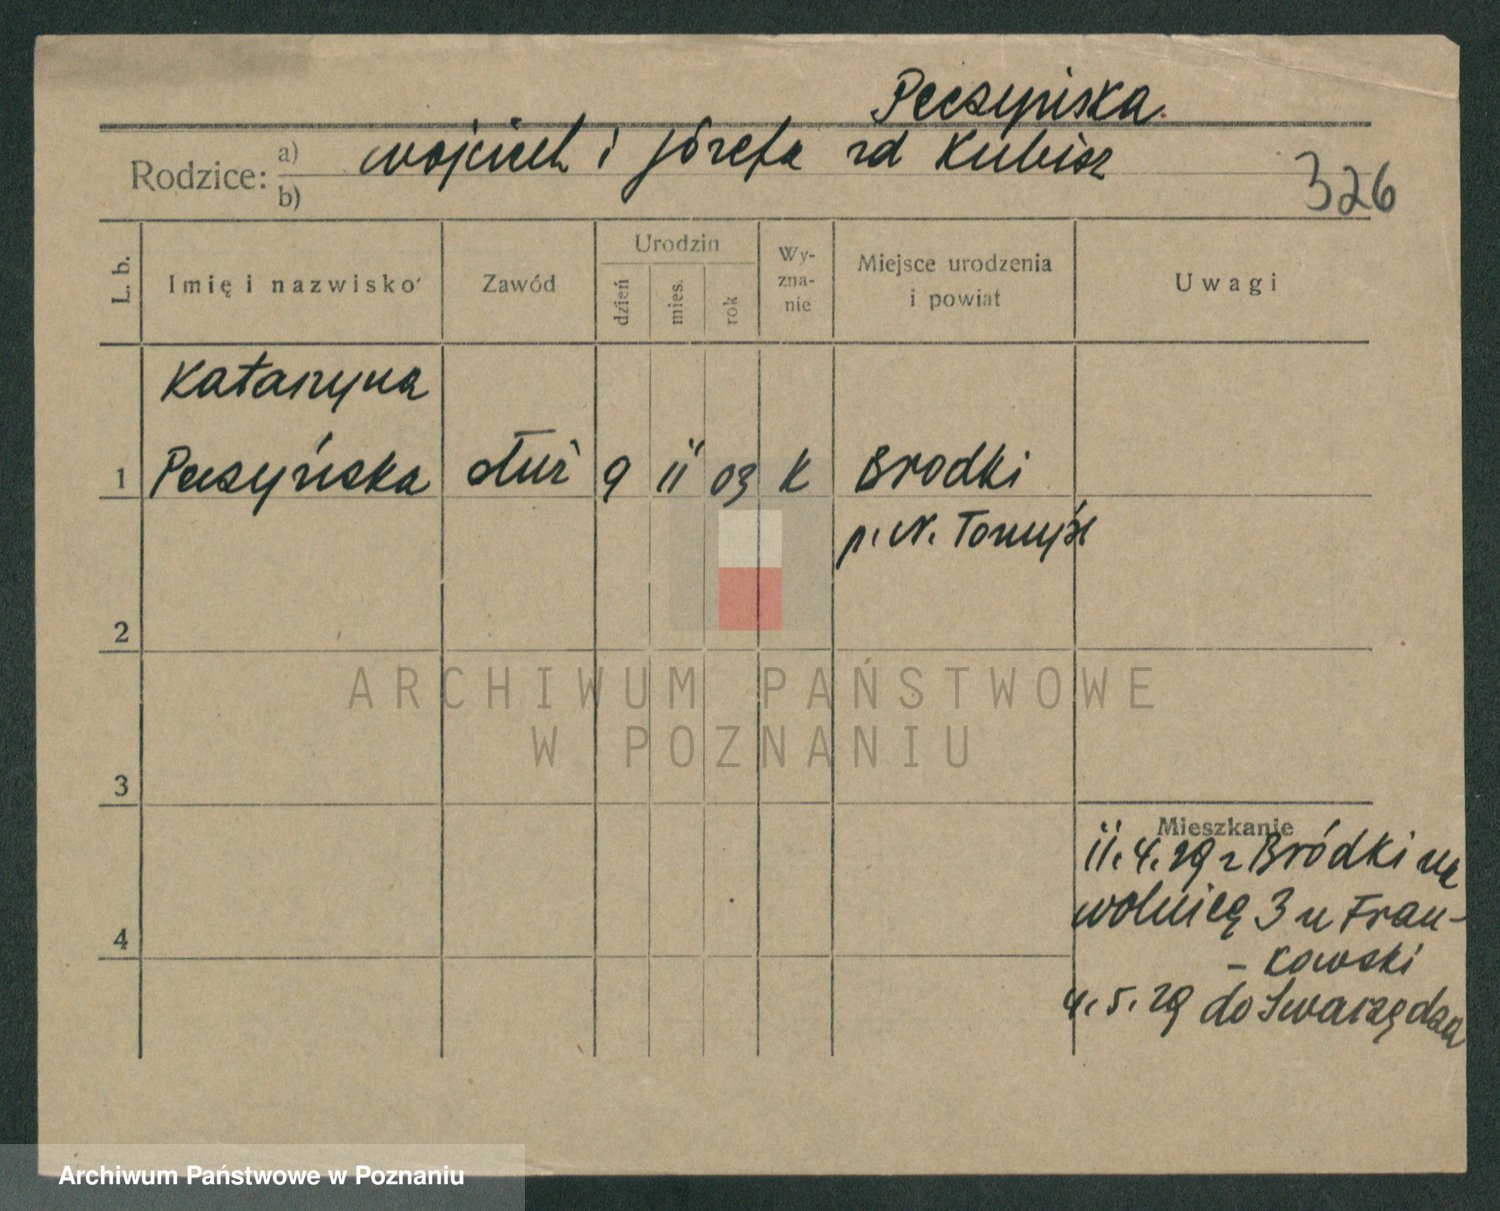 Peczyńska.
Rodzice: a) b)
Wojciech i Józefa zd Kubisz
326
L. b.
Imię i nazwisko
Zawód
Urodzin
dzień mies. rok
Wy-
zna-
nie
Miejsce urodzenia
i powiat
Uwagi
Katarzyna
1 Peczyńska służ 9 II 03 K Brodki
p. N. Tomyśl
2
3
4
ARCHIWUM PAŃSTWOWE
W POZNANIU
Mieszkanie
II. 4. 29 z Bródki na
Wolnicę 3 u Fran-
- kowski
4. 5. 29 do Swarzędza
Archiwum Państwowe w Poznaniu